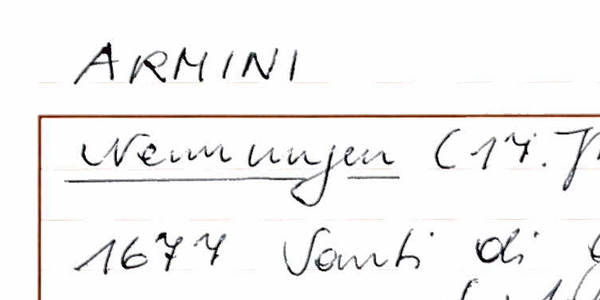 ARMINI
Nennungen (17.
1677 Santi di